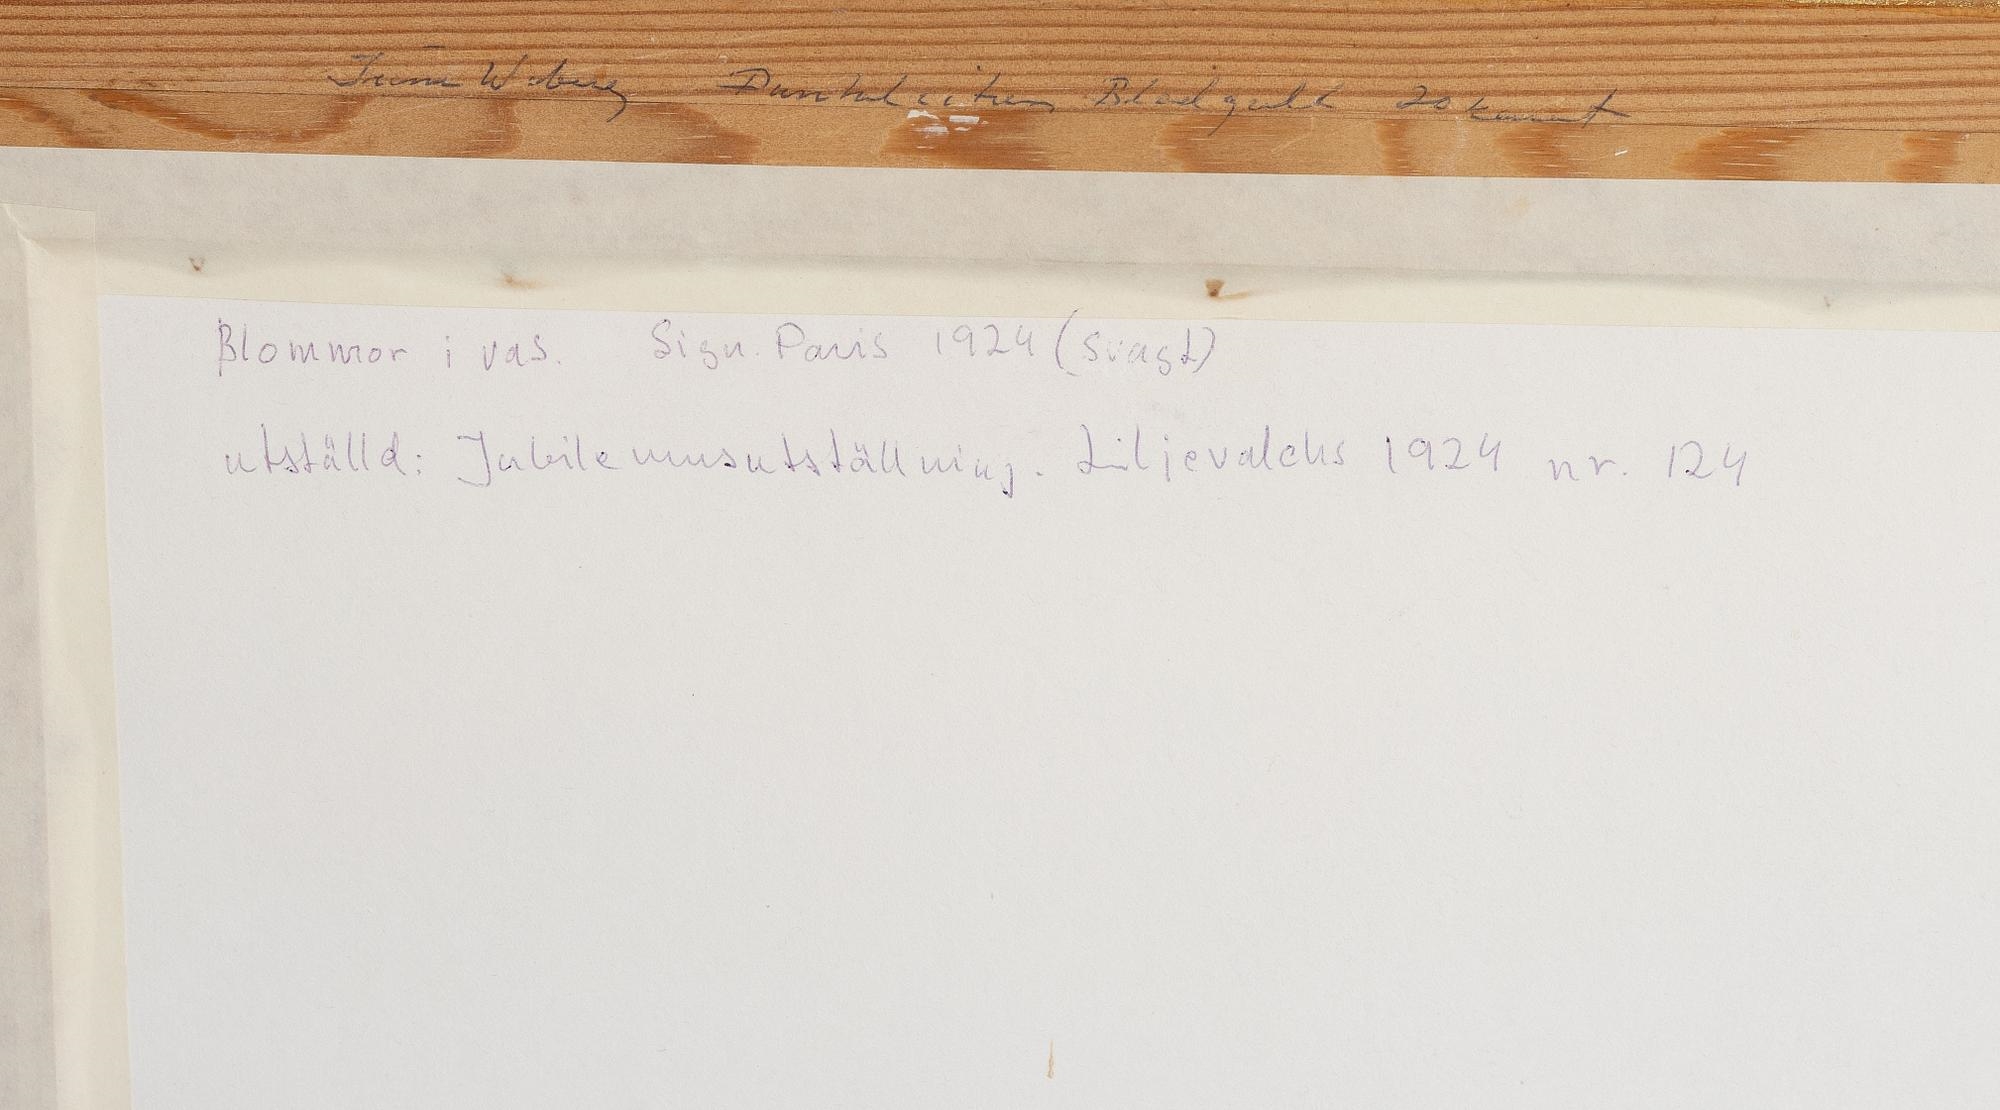 Blad guld 20 karat
Blommor i vas. Sign. Paris 1924 (svagt)
utställd: Jubileumsutställning. Liljevalchs 1924 nr. 124